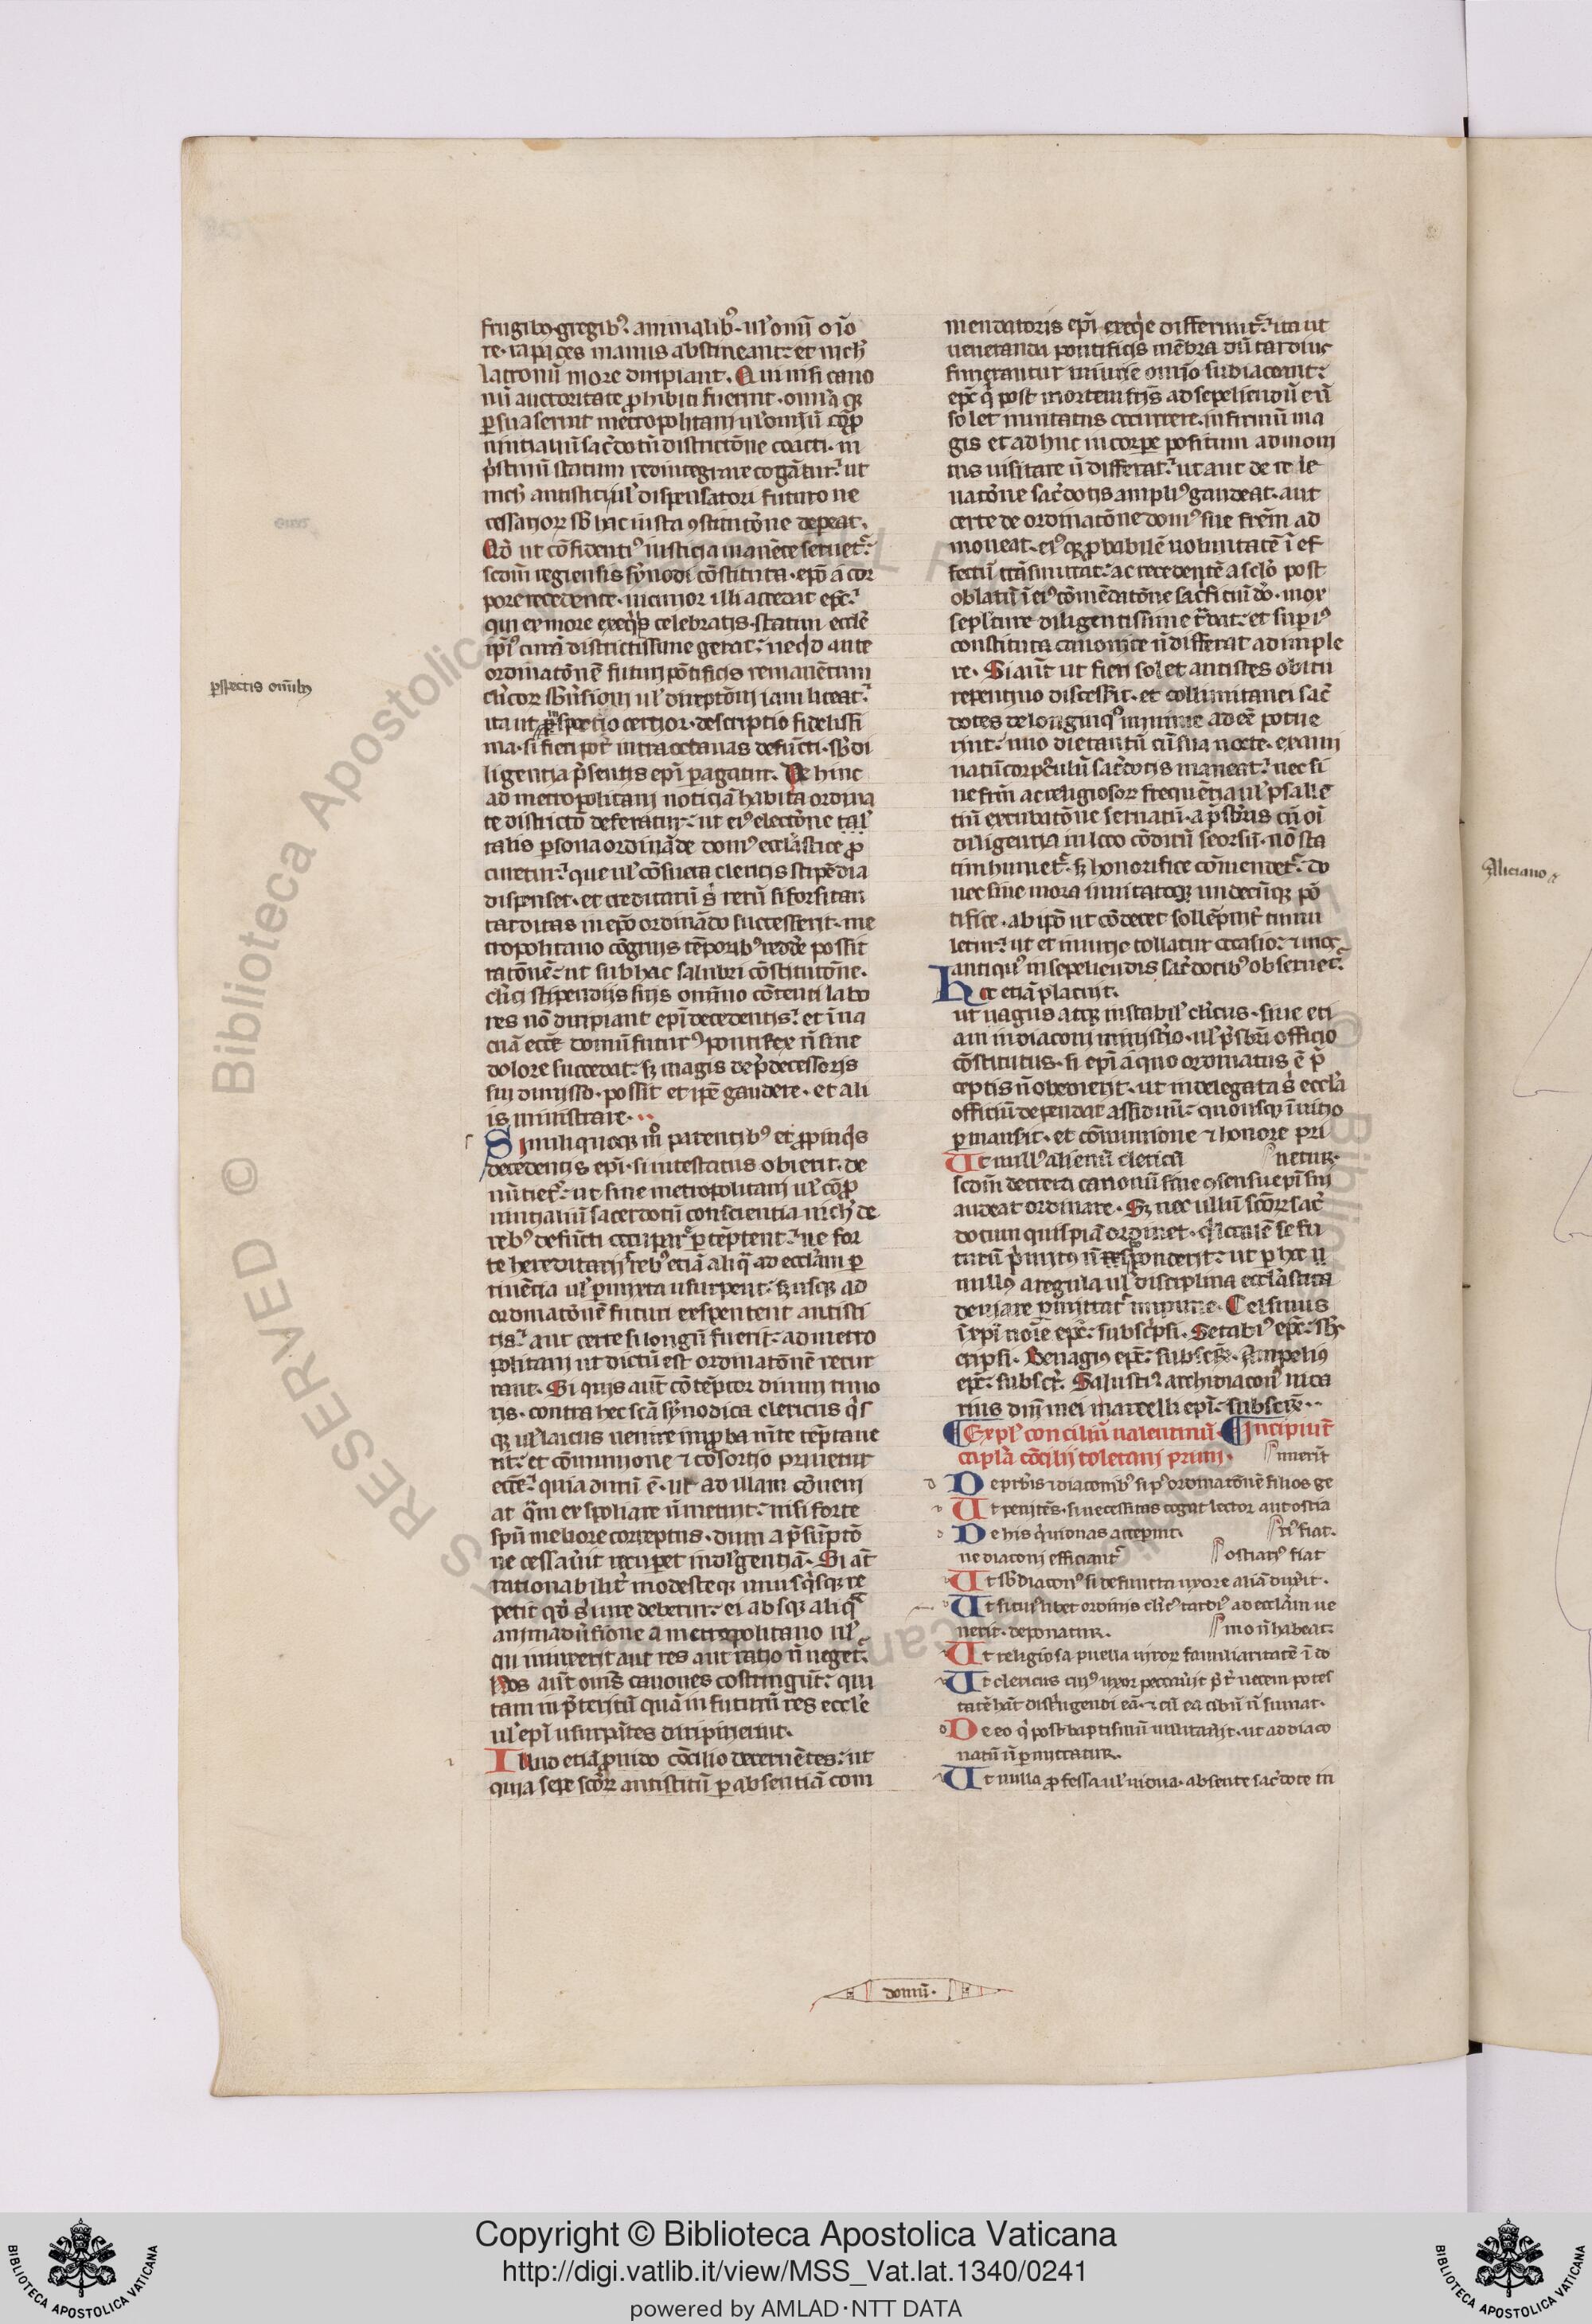 frugibꝫ gregibꝰ. animalibꝰ. ul̓ omī oīo
re. rapaces manus abstineant: et nich̓
latronū more diripiant. Qui nisi cano
nū auctoritate ꝓhibiti fuerint. omīa qꝫ
ꝑsuaserint metropolitani ul̓ omīū cōꝓ
uintialiū sac̓dotū districtōne coacti. in
p̓stinū statum redintegrare cogāturᷣ. ut
nich̓ antistiti ul̓ dispensatori futuro ne
cessarioꝝ sb̓ hac iusta ꝯstitutōne depeat.
Qd̓ ut cōfidentiꝰ iusticia manēte seruet̓:
scd̓m regiensis sẏnodi cōstituta. ep̄o a cor
pore recedente. uicinior illi accedat ep̄c:
qui ex more exeq̓is celebratis. statim eccl̓ie
ip̄iꝰ curā districtissime gerat: ne qd̓ ante
ordinatōnē futuri pōtificis remanētium
cl̓icoꝝ sb̓u̓sioni ul̓ direptōni iam liceat:
ita ut ꝓspectio certior. descriptio fidelissi
ma. si fieri pot̓ intra octauas defūcti. sb̓ di
ligentia p̓sentis ep̄i ꝑagatur. De hinc
ad metropolitani noticiā habita ordina
te districtō deferatur: ut eiꝰ electōne tal̓
talis ꝑsona ordināde domꝰ eccl̓astice ꝓ
curetur: que ul̓ cōsueta clericis stipēdia
dispenset. et creditariū s̓ rerū si forsitan
tarditas in ep̄o ordinādo successerit. me
tropolitano cōgruis tēporibꝰ redd̓e possit
ratōnē: ut sub hac salubri cōstitutōne.
cl̓ici stipendijs suis omīno cōtenti labo
res nō diripiant ep̄i decedentis: et ī ua
cuā ecc̄e domū futurꝰ pontifex n̄ sine
dolore succedat: sꝫ magis de p̓decessoris
sui dimisso. possit et ip̄e gaudere. et ali
is ministrare.
Simili quoqꝫ mō parentibꝰ et ꝓpinq̓s
decedentis ep̄i. si intestatus obierit. de
nūtiet̓: ut sine metropolitani ul̓ cōꝓ
uintialiū sacerdotū conscientia nich̓ de
rebꝰ defūcti occupaꝝ ꝑtēptent: ne for
te hereditarijs rebꝰ etiā aliq̄ ad eccl̓iam ꝑ
tinētia ul̓ ꝑmixta usurpent: sꝫ usqꝫ ad
ordinatōnē futuri expectent antisti
tis: aut certe si longū fuerit: ad metro
politani ut dictū est ordinatōnē recur
rant. Si quis aut̄ cōtēptor diuini timo
ris. contra hec sc̄a sẏnodica clericus q̓s
qꝫ ul̓ laicus uenire imꝓba m̄te tēptaue
rit: et cōmunione ⁊ cōsortio priuetur
ecc̄e: quia durū ē. ut ad illam cōueni
at q̄m exspoliare n̄ metuit: nisi forte
sp̄u meliore correptus. dum a p̓sūptō
ne cessau̓it recuꝑet indulgentiā. Si at̄
rationabilit̓ modesteqꝫ unusq̓sqꝫ re
petit qd̓ s̓ iure debetur: ei absqꝫ aliq̄
animadu̓sione a metropolitano ul̓
cui iniunxerit aut res aut ratio n̄ neget̓:
Nos aut̄ om̄s canones costringūt: qui
tam in p̓teritū quā in futurū res eccl̓ie
ul̓ ep̄i usurpātes diripiuerint.
Illud etiā ꝓuido cōcilio decernētes: ut
quia sepe sc̄oꝝ antistitū ꝑ absentiā com
ꝑspectis omībꝫ
mendatoris ep̄i exeq̓e differunt̓: ita ut
ueneranda pontificis mēbra dū tardius
funerantur iniurie omīo subiaceant:
ep̄c q̓ post mortem fr̄is ad sepeliendū eū
solet inuitatus occurrere. infirmū ma
gis et adhuc in corpe positum admoni
tus uisitare n̄ differat: ut aut de rele
uatōne sac̓dotis ampliꝰ gaudeat. aut
certe de ordinatōne domꝰ sue fr̄em ad
moneat. eiꝰqꝫ ꝓbabilē uoluntatē ī ef
fectū trāsmittat: ac recedentē a scl̓o post
oblatū ī eiꝰ cōmēdatōne sac̓ficiū dō. mox
sepl̓ture diligentissime t̓dat: et supiꝰ
constituta canonice n̄ differat adimple
re. Si aut̄ ut fieri solet antistes obitu
repentino discesserit. et collimitanei sac̄
dotes de longinqꝰ minime adeē potue
rint: uno die tantū cū sua nocte. exani
matū corpꝰculū sac̓dotis maneat: nec si
ne fr̄m ac religiosoꝝ frequētia ul̓ psallē
tiū excubatōne seruatū. a p̓sb̓ris cū oī
diligentia in loco cōditū seorsū. nō sta
tim humet̓: sꝫ honorifice cōmendet̓: do
nec sine mora inuitatoqꝫ undecūqꝫ pō
tifice. ab ip̄o ut cōdecet sollēpnit̓ tumu
letur: ut et iniurie tollatur occasio: ⁊ mos
antiquꝰ in sepeliendis sac̓dotibꝰ obseruet̓:
Hoc etiā placuit.
ut uagus atqꝫ instabil̓ cl̓icus. siue eti
am in diaconi ministerio. ul̓ p̓sb̓ri officio
cōstitutus. si ep̄i a quo ordinatus ē p̓
ceptis n̄ obedierit. ut in delegata s̓ eccl̓a
officiū dependat assiduū: quousqꝫ ī uitio
ꝑmansit. et cōmunione ⁊ honore pri
Ut null̓ alienū clericū uetur.
scd̓m decreta canonū sine ꝯsensu ep̄i sui
audeat ordinare. Sꝫ nec ullū sc̄oꝝ sac̓
dotum quispiā ordinet. q̓ localē se fu
turū p̓mitus n̄ responderit: ut ꝑ hoc n̄
nullꝰ a regula ul̓ disciplina eccl̓astica
deuiare ꝑmittat̓ impune. Celsinus
ī xp̄i noīe ep̄c: subscripsi. Setabiꝰ ep̄c: sb̓s
cripsi. Benagiꝰ ep̄c: subscse. Ampeliꝰ
ep̄c: subscr̓. Salustiꝰ archidiaconꝰ uica
rius dn̄i mei marcelli ep̄i: subscse.
Expl̓ conciliū ualentinū. Incipiūt
capl̓a cōcilij toletani primi. nuerīt
De p̓sb̓ris ⁊ diaconibꝰ si pꝰ ordinatōnē filios ge
Ut penitēs. si necessitas cogat lector aut ostia
De his q̓ uiduas acceperint. riꝰ fiat.
ne diaconi efficiant̓ ostiariꝰ fiat
Ut sb̓diaconꝰ si defuncta uxore aliā dux̓it.
Ut si cuiꝰlibet ordinis cl̓icꝰ tardiꝰ ad eccl̓iam ue
nerit. deponatur. mo n̄ habeat:
Ut religiosa puella uiroꝝ familiaritatē ī do
Ut clericus cuiꝰ uxor peccau̓it p̓t̓ necem potes
tatē hāt distrīgendi eā. ⁊ cū ea cibū n̄ sumat.
De eo q̓ post baptismū militau̓it. ut ad diaco
natū n̄ ꝑmittatur.
Ut nulla ꝓfessa ul̓ uidua. absente sac̓dote in
domū.
Aliciano
Copyright © Biblioteca Apostolica Vaticana
http://digi.vatlib.it/view/MSS_Vat.lat.1340/0241
powered by AMLAD·NTT DATA
BIBLIOTECA APOSTOLICA VATICANA
BIBLIOTECA APOSTOLICA VATICANA